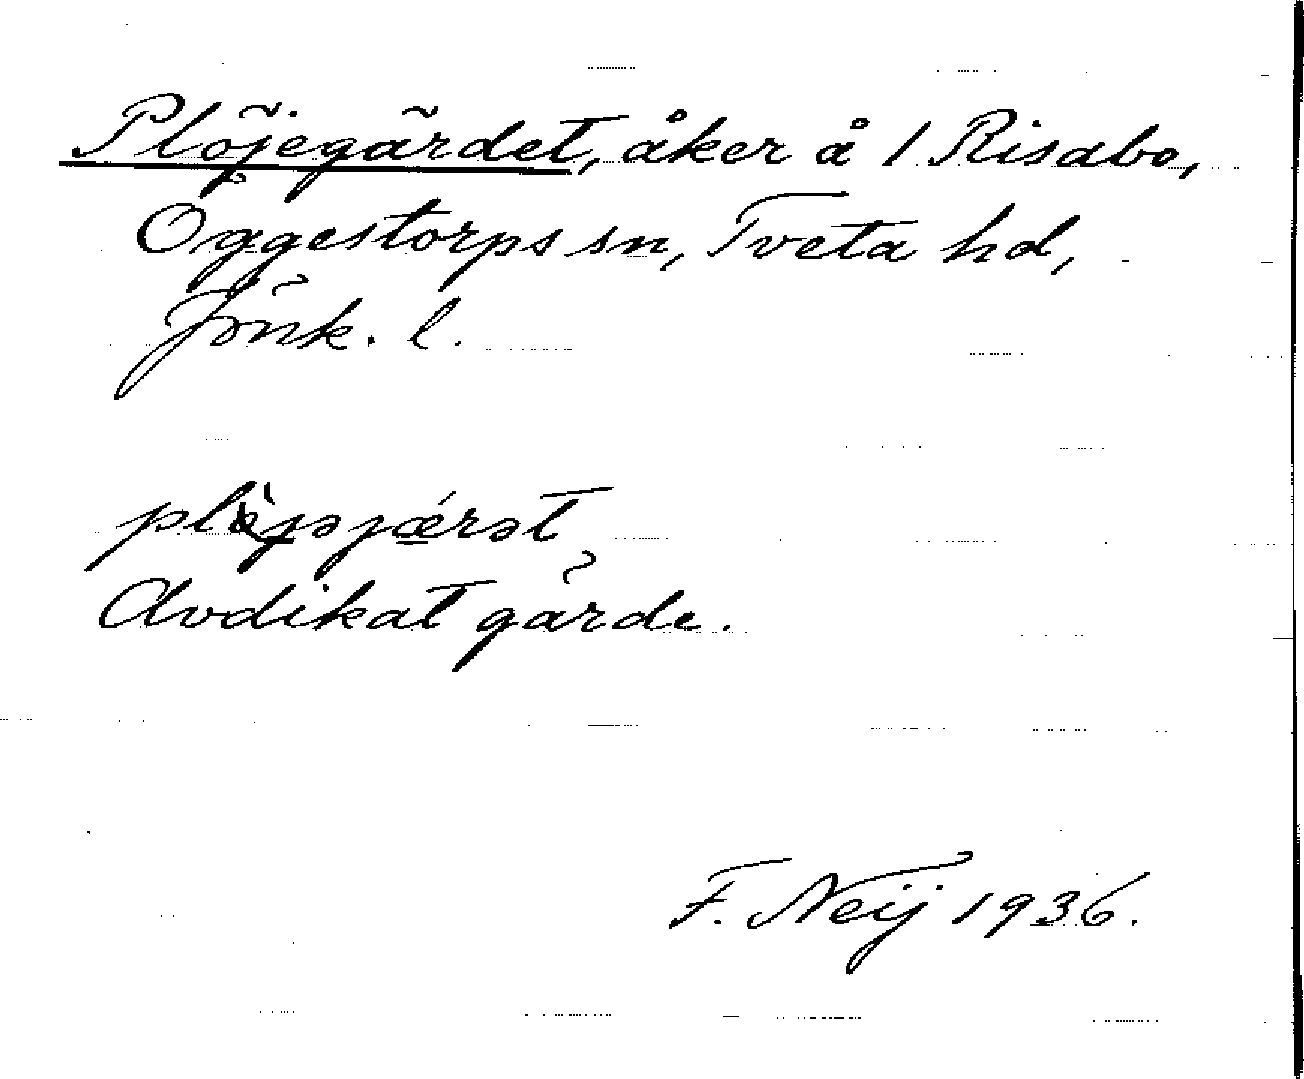 Plöjegärdet, åker å 1 Risabo,
Oggestorps sn, Tveta hd,
Jönk. l.
plöjəjæ̀rət
Avdikat gärde.
F. Neij 1936.